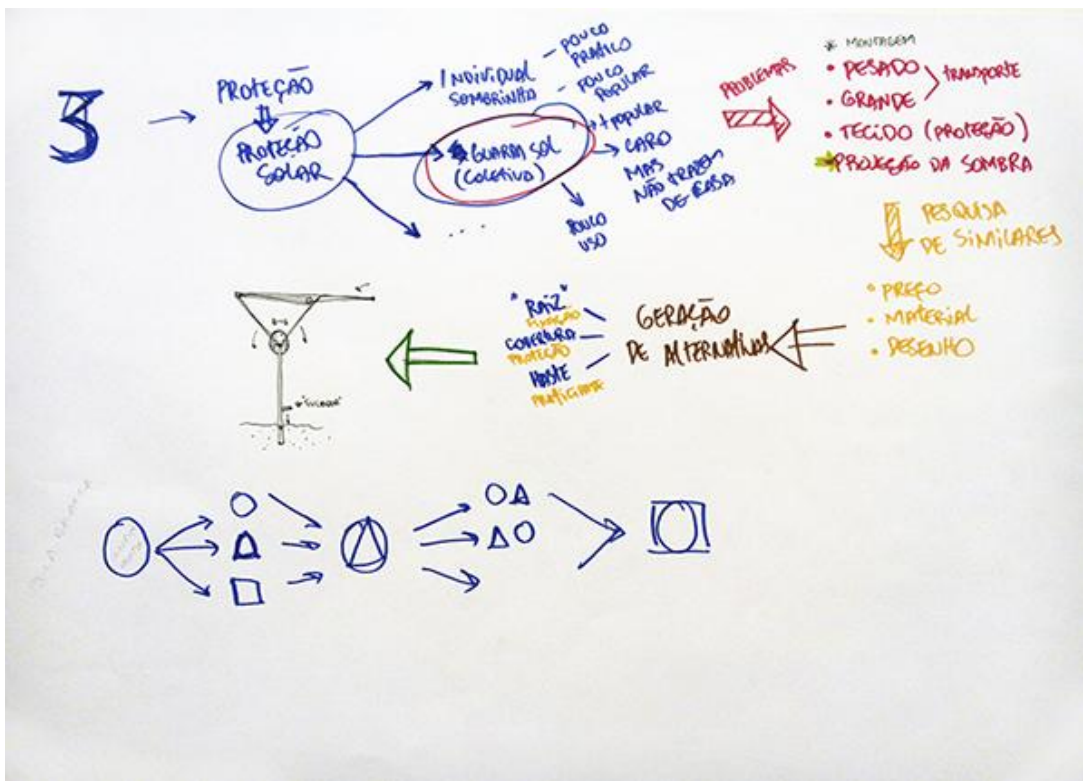 3
PROTEÇÃO
PROTEÇÃO
SOLAR
INDIVIDUAL
SOMBRINHA
POUCO
PRATICO
POUCO
POPULAR
+ POPULAR
GUARDA SOL
(COLETIVO)
CARO
MAS
NÃO TRAZEM
DE CASA
POUCO
USO
...
PROBLEMAS
* MONTAGEM
• PESADO
• GRANDE
TRANSPORTE
• TECIDO (PROTEÇÃO)
PROJEÇÃO DA SOMBRA
PESQUISA
DE SIMILARES
• PREÇO
• MATERIAL
• DESENHO
GERAÇÃO
DE ALTERNATIVAS
"RAIZ"
FIXAÇÃO
COBERTURA
PROTEÇÃO
HASTE